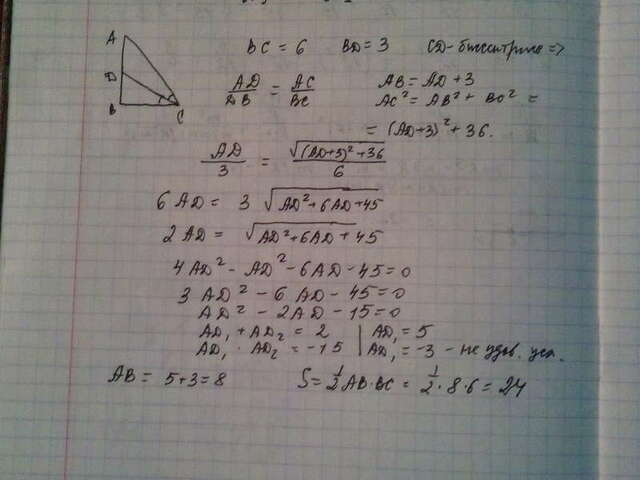 A
D
B
C
BC = 6 BD = 3 CD - биссектриса =>
AD/DB = AC/BC AB = AD + 3
AC² = AB² + BC² =
= (AD+3)² + 36.
AD/3 = √((AD+3)² + 36)/6
6 AD = 3 √(AD² + 6AD + 45)
2 AD = √(AD² + 6AD + 45)
4AD² - AD² - 6AD - 45 = 0
3 AD² - 6 AD - 45 = 0
AD² - 2AD - 15 = 0
AD₁ + AD₂ = 2 | AD₁ = 5
AD₁ · AD₂ = -15 | AD₁ = -3 - не удов. усл.
AB = 5+3 = 8 S = 1/2 AB·BC = 1/2 · 8 · 6 = 24